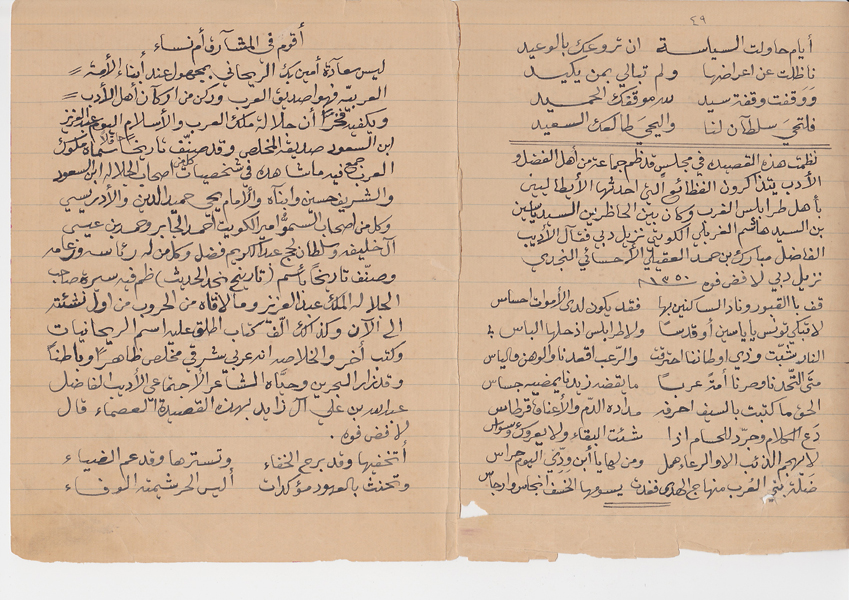 ٤٩
أيام حاولت السياسة ان تروعك بالوعيد
ناظلت عن اعراضها ولم تبالي بمن يكيد
ووقفت وقفة سيد لله موقفك الحميد
فلتحيَ سلطان لنا وليحيَ طالعك السعيد
نظمت هذه القصيده في مجلس قد ظم جماعة من أهل الفضل و
الأدب يتذاكرون الفظائع التي احدثها الأيطاليين
بأهل طرابلس الغرب وكان بين الحاظرين السيد
بن السيد هاشم الغربلي الكويتي نزيل دبي فقال الأديب
الفاضل مبارك بن حمد العقيلي الأحسائي النجدي
نزيل دبي لا فض فوه ١٣٥٠
قف بالقبور وناد الساكنين بها فقد يكون لدى الأموات احساس
لا تبكي تونس يا ياسين أو قدسا ولا طرابلس اذ حلها الباس
النار شبّت وذي اوطاننا احترقت والرعب أقعدنا والوهن والياس
متى اتّحدنا وصرنا أمة عربا ما يقضه زيدنا يمضيه جساس
الحق ما كتبت بالسيف احرفه مداده الدم والأعناق قرطاس
دع الكلام وجرّد للحسام اذا شئت البقاء ولا يعروك وسواس
لا يهجم الذئب الا والرعاء همل ومن لها يا أبن ودّي اليوم حراس
ضلّت بني العرب منهاج الهدى فغدت يسومها الخسف انجاس وارجاس
أقوم في المشارق أم نساء
ليس سعادة أمين بك الريحاني بمجهول عند أبناء الأمة
العربيه فهو صديق العرب وركن من اركان أهل الأدب
ويكفيه فخرًا أن جلالة ملك العرب والأسلام اليوم عبد العزيز
ابن السعود صديقه المخلص وقد صنّف تاريخًا سماه ملوك
العرب جمع فيه ما شاهده في شخصيات كل من اصحاب الجلاله ابن السعود
والشريف حسين وابناه والأمام يحيى حميد الدين والأدريسي
وكل من اصحاب السمو امير الكويت احمد الجابر وحمد بن عيسى
آل خليفه وسلطان لحج عبد الكريم فضل وكل من له رئاسه وزعامه
وصنّف تاريخًا بأسم (تاريخ نجد الحديث) ظم فيه سيرة صاحب
الجلاله الملك عبد العزيز وما لاقاه من الحروب من اول نشئته
الى الآن وكذالك ألّف كتاب اطلق عليه اسم الريحانيات
وكتب أخر والخلاصه انه عربي شرقي مخلص ظاهرًا وباطنًا
وقد زار البحرين وحيّاه الشاعر الأجتماعي الأديب الفاضل
عبد الله بن علي آل زايد بهذه القصيدة العصماء قال
لا فض فوه .
أتخفيها وقد برح الخفاء وتسترها وقد عم الضياء
وتحنث بالعهود مؤكدات أليس الحر شيمته الوفاء